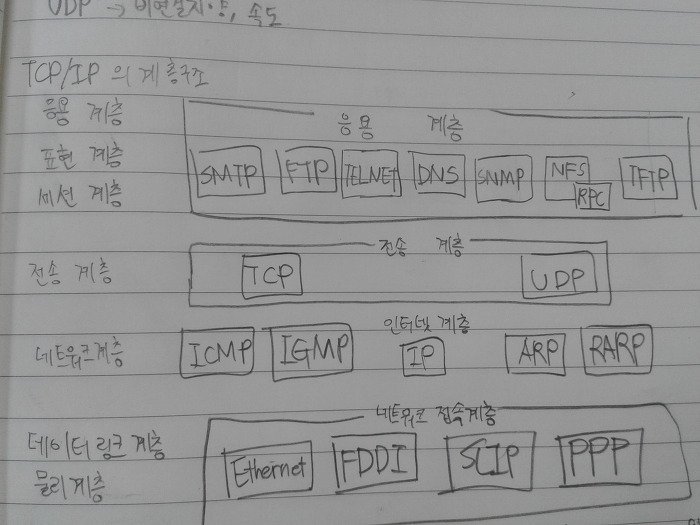 UDP → 비연결지향, 속도
TCP/IP 의 계층구조
응용 계층
응용 계층
표현 계층
SMTP FTP TELNET DNS SNMP NFS TFTP
세션 계층
RPC
전송 계층
전송 계층
TCP UDP
인터넷 계층
네트워크계층
ICMP IGMP IP ARP RARP
네트워크 접속계층
데이터 링크 계층
Ethernet FDDI SLIP PPP
물리계층